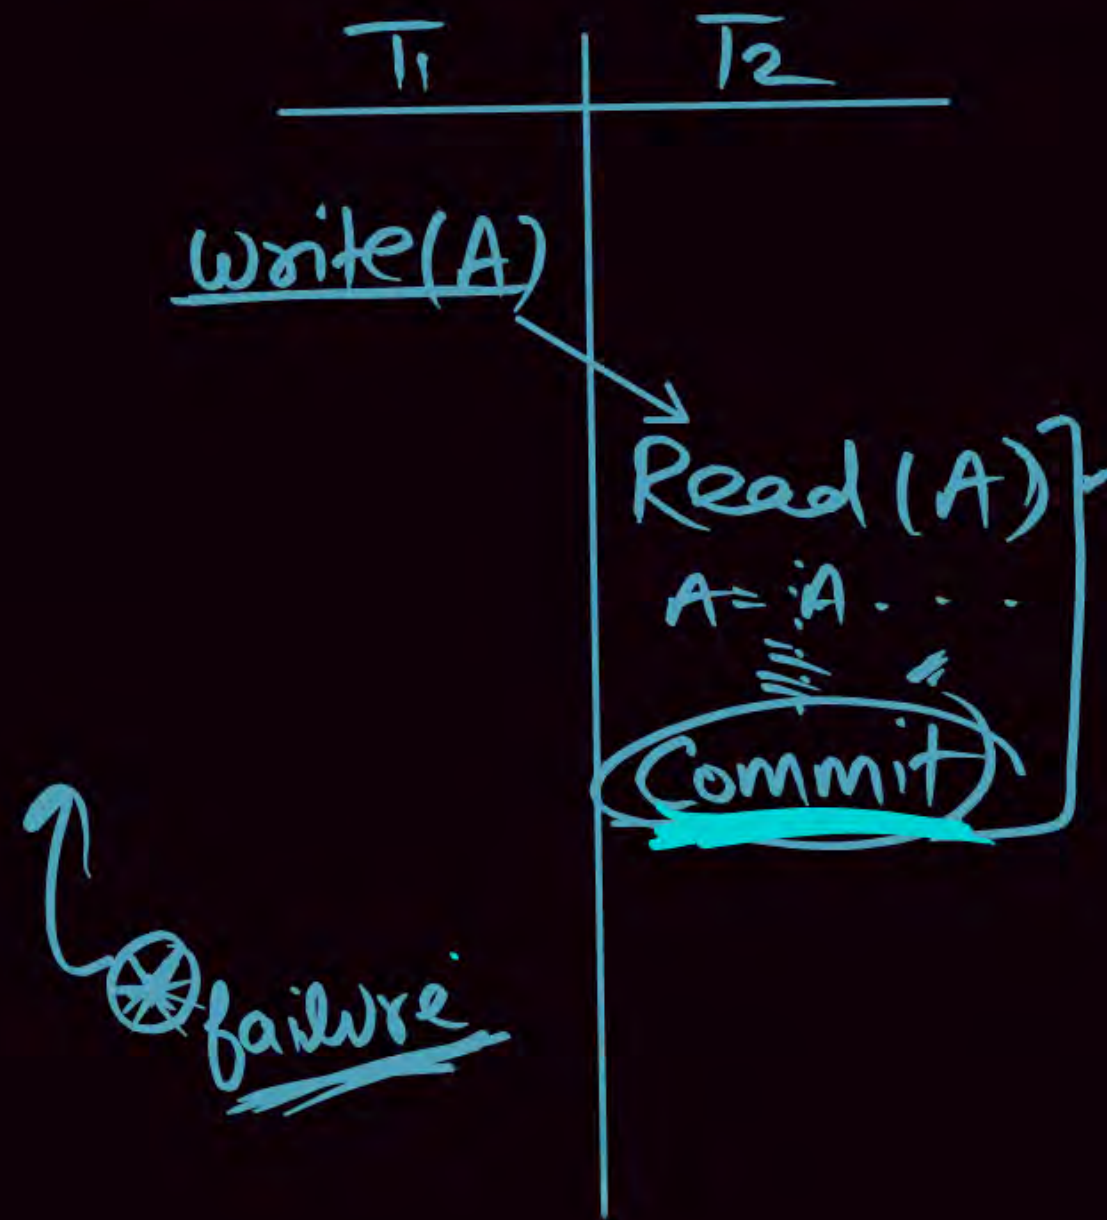 T1 T2
write(A)
Read (A)
A = A . . .
Commit
failure